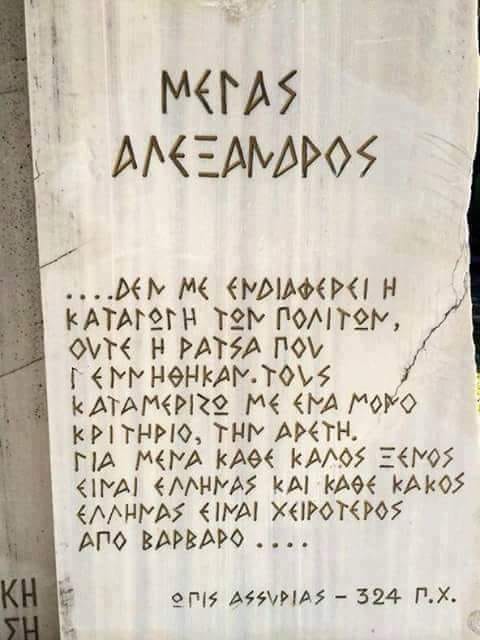 ΜΕΓΑΣ
ΑΛΕΞΑΝΔΡΟΣ
....ΔΕΝ ΜΕ ΕΝΔΙΑΦΕΡΕΙ Η
ΚΑΤΑΓΩΓΗ ΤΩΝ ΠΟΛΙΤΩΝ,
ΟΥΤΕ Η ΡΑΤΣΑ ΠΟΥ
ΓΕΝΝΗΘΗΚΑΝ. ΤΟΥΣ
ΚΑΤΑΜΕΡΙΖΩ ΜΕ ΕΝΑ ΜΟΝΟ
ΚΡΙΤΗΡΙΟ, ΤΗΝ ΑΡΕΤΗ.
ΓΙΑ ΜΕΝΑ ΚΑΘΕ ΚΑΛΟΣ ΞΕΝΟΣ
ΕΙΝΑΙ ΕΛΛΗΝΑΣ ΚΑΙ ΚΑΘΕ ΚΑΚΟΣ
ΕΛΛΗΝΑΣ ΕΙΝΑΙ ΧΕΙΡΟΤΕΡΟΣ
ΑΠΟ ΒΑΡΒΑΡΟ ....
ΩΠΙΣ ΑΣΣΥΡΙΑΣ – 324 Π.Χ.
ΚΗ
ΣΗ